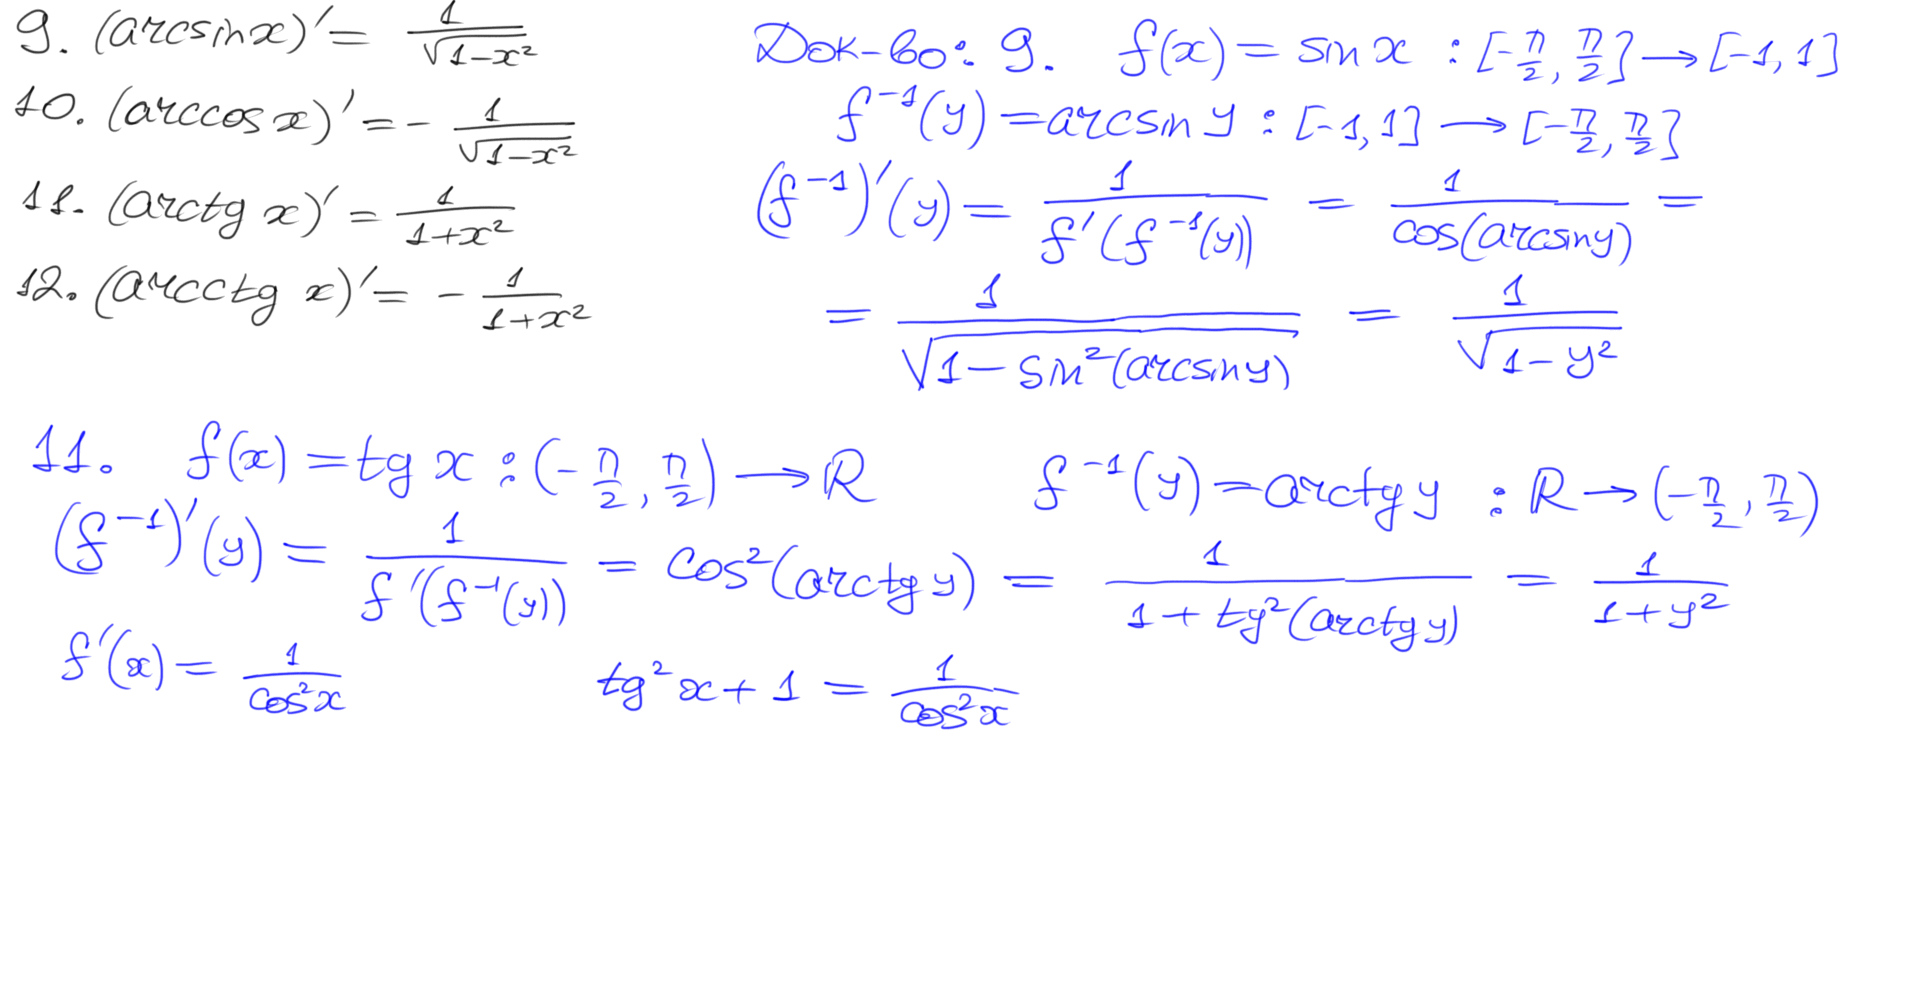 9. (arcsinx)' = 1/√(1-x²)
10. (arccos x)' = - 1/√(1-x²)
11. (arctg x)' = 1/(1+x²)
12. (arcctg x)' = - 1/(1+x²)
Док-во: 9. f(x) = sin x : [-π/2, π/2] → [-1, 1]
f⁻¹(y) = arcsin y : [-1, 1] → [-π/2, π/2]
(f⁻¹)'(y) = 1/(f'(f⁻¹(y))) = 1/(cos(arcsiny)) =
= 1/√(1 - sin²(arcsiny)) = 1/√(1-y²)
11. f(x) = tg x : (-π/2, π/2) → R f⁻¹(y) = arctg y : R → (-π/2, π/2)
(f⁻¹)'(y) = 1/(f'(f⁻¹(y))) = cos²(arctg y) = 1/(1 + tg²(arctg y)) = 1/(1+y²)
f'(x) = 1/(cos²x) tg²x + 1 = 1/(cos²x)